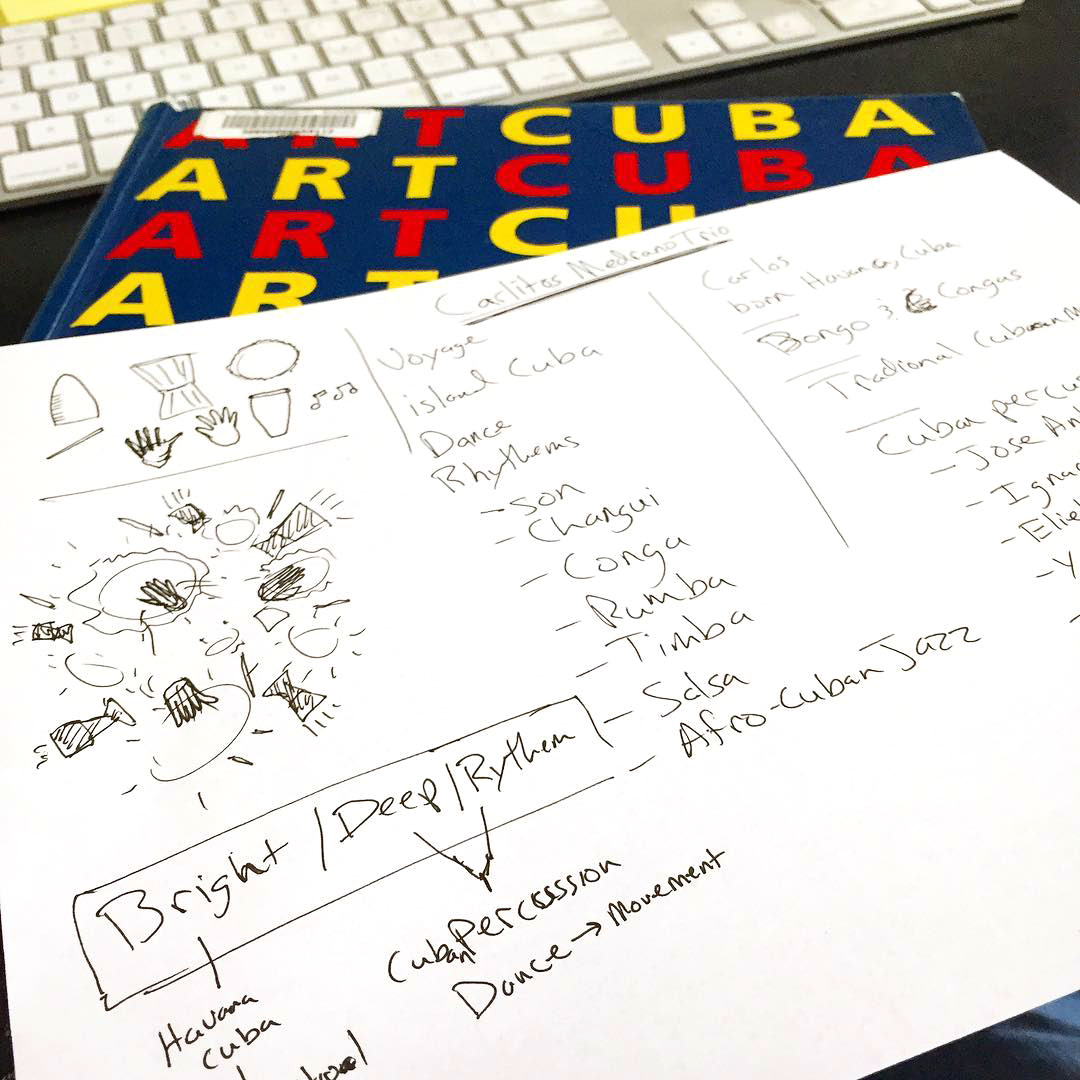 ART CUBA
ART CUBA
ART CU
ART
Carlitos Medrano Trio
Voyage
island Cuba
Dance
Rhythems
- Son
- Changui
- Conga
- Rumba
- Timba
- Salsa
- Afro-Cuban Jazz
Carlos
born Havana, Cuba
Bongo & Congas
Tradional Cuban M
Cuban percus
- Jose An
- Ignac
- Elie
- Y
Bright / Deep / Rythem
Havana
Cuba
Cuban Percussion
Dance → Movement